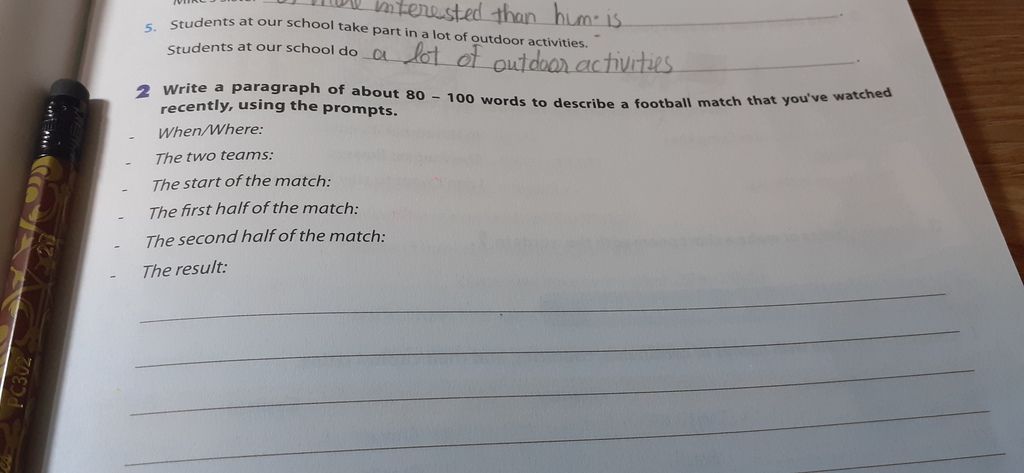 interested than him is
5. Students at our school take part in a lot of outdoor activities.
Students at our school do a lot of outdoor activities.
2 Write a paragraph of about 80 – 100 words to describe a football match that you've watched
recently, using the prompts.
- When/Where:
- The two teams:
- The start of the match:
- The first half of the match:
- The second half of the match:
- The result:
PC302